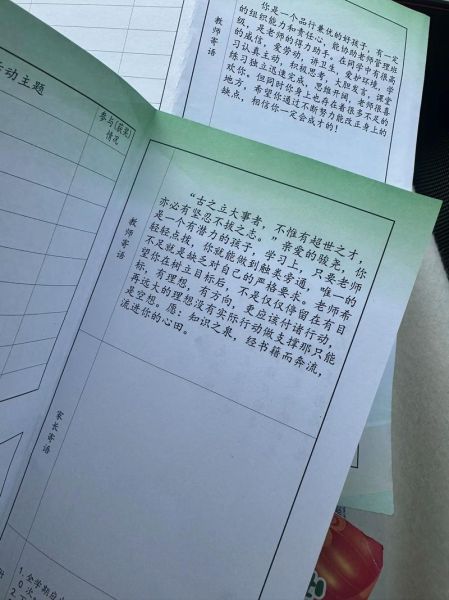 你是一个品行兼优的好孩子，有一定
的组织能力和责任心，能协助老师管理班
级，是老师的得力助手。在同学中有很高
的威信，爱劳动，讲卫生，爱护环境，学
习认真主动，积极思考，大胆发言，课堂
练习独立迅速完成，思维开阔，老师很喜
欢你。但同时你身上也存在着很多不足的
地方，希望你通过不断努力能改正身上的
缺点，相信你一定会成才的！
教师寄语
动主题
参与(获奖)
情况
“古之立大事者，不惟有超世之才，
亦必有坚忍不拔之志。”亲爱的骏尧，你
是一个有潜力的孩子，学习上，只要老师
轻轻点拨，你就能做到触类旁通，唯一的
不足就是缺乏对自己的严格要求。老师希
望你在树立目标后，不是仅仅停留在有目
标，有理想，有方向，更应该付诸行动，
再远大的理想没有实际行动做支撑那只能
是空想。愿：知识之泉，经书籍而奔流，
流进你的心田。
教师寄语
家长寄语
1.全学期自